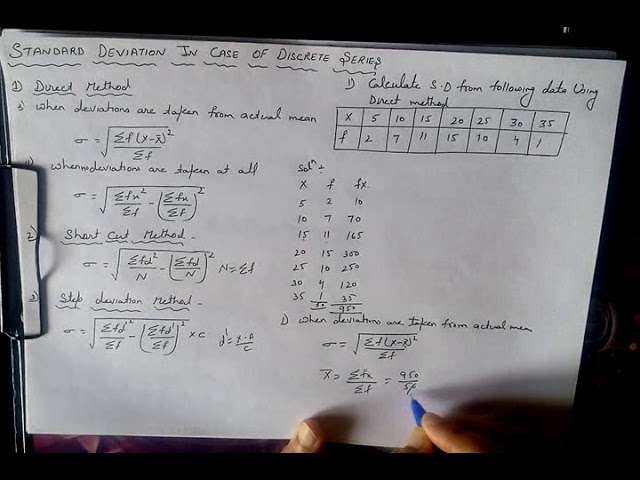 STANDARD DEVIATION IN CASE OF DISCRETE SERIES
1) Direct Method
when deviations are taken from actual mean
σ = √(Σf(x-x̄)²/Σf)
when no deviations are taken at all
σ = √(Σfx²/Σf - (Σfx/Σf)²)
2) Short Cut Method -
σ = √(Σfd²/N - (Σfd/N)²) N = Σf
3) Step deviation Method -
σ = √(Σfd'²/Σf - (Σfd'/Σf)²) × C d' = x-A/C
1) Calculate S.D from following data Using
Direct method
X 5 10 15 20 25 30 35
f 2 7 11 15 10 4 1
Solⁿ :-
X f fx
5 2 10
10 7 70
15 11 165
20 15 300
25 10 250
30 4 120
35 1 35
50 950
1) when deviations are taken from actual mean
σ = √(Σf(x-x̄)²/Σf)
X̄ = Σfx/Σf = 950/50